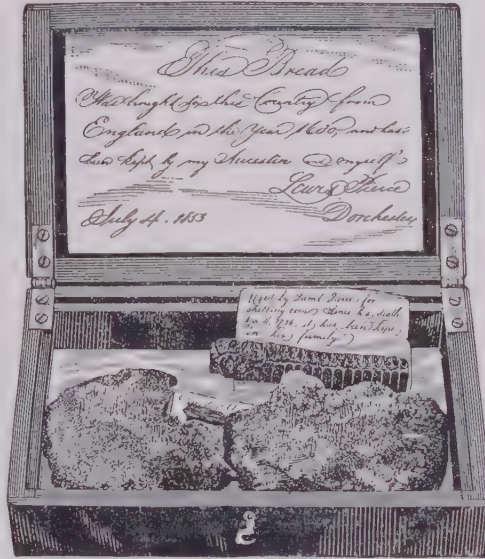 This Bread
Was brought to this Country from
England in the Year 1630, and has
been kept by my Ancestors and myself
Lewis Pierce
July 4. 1853 Dorchester
Used by Saml Pierce, for
shelling corn Since his death
in 1776, it has been kept
in his family